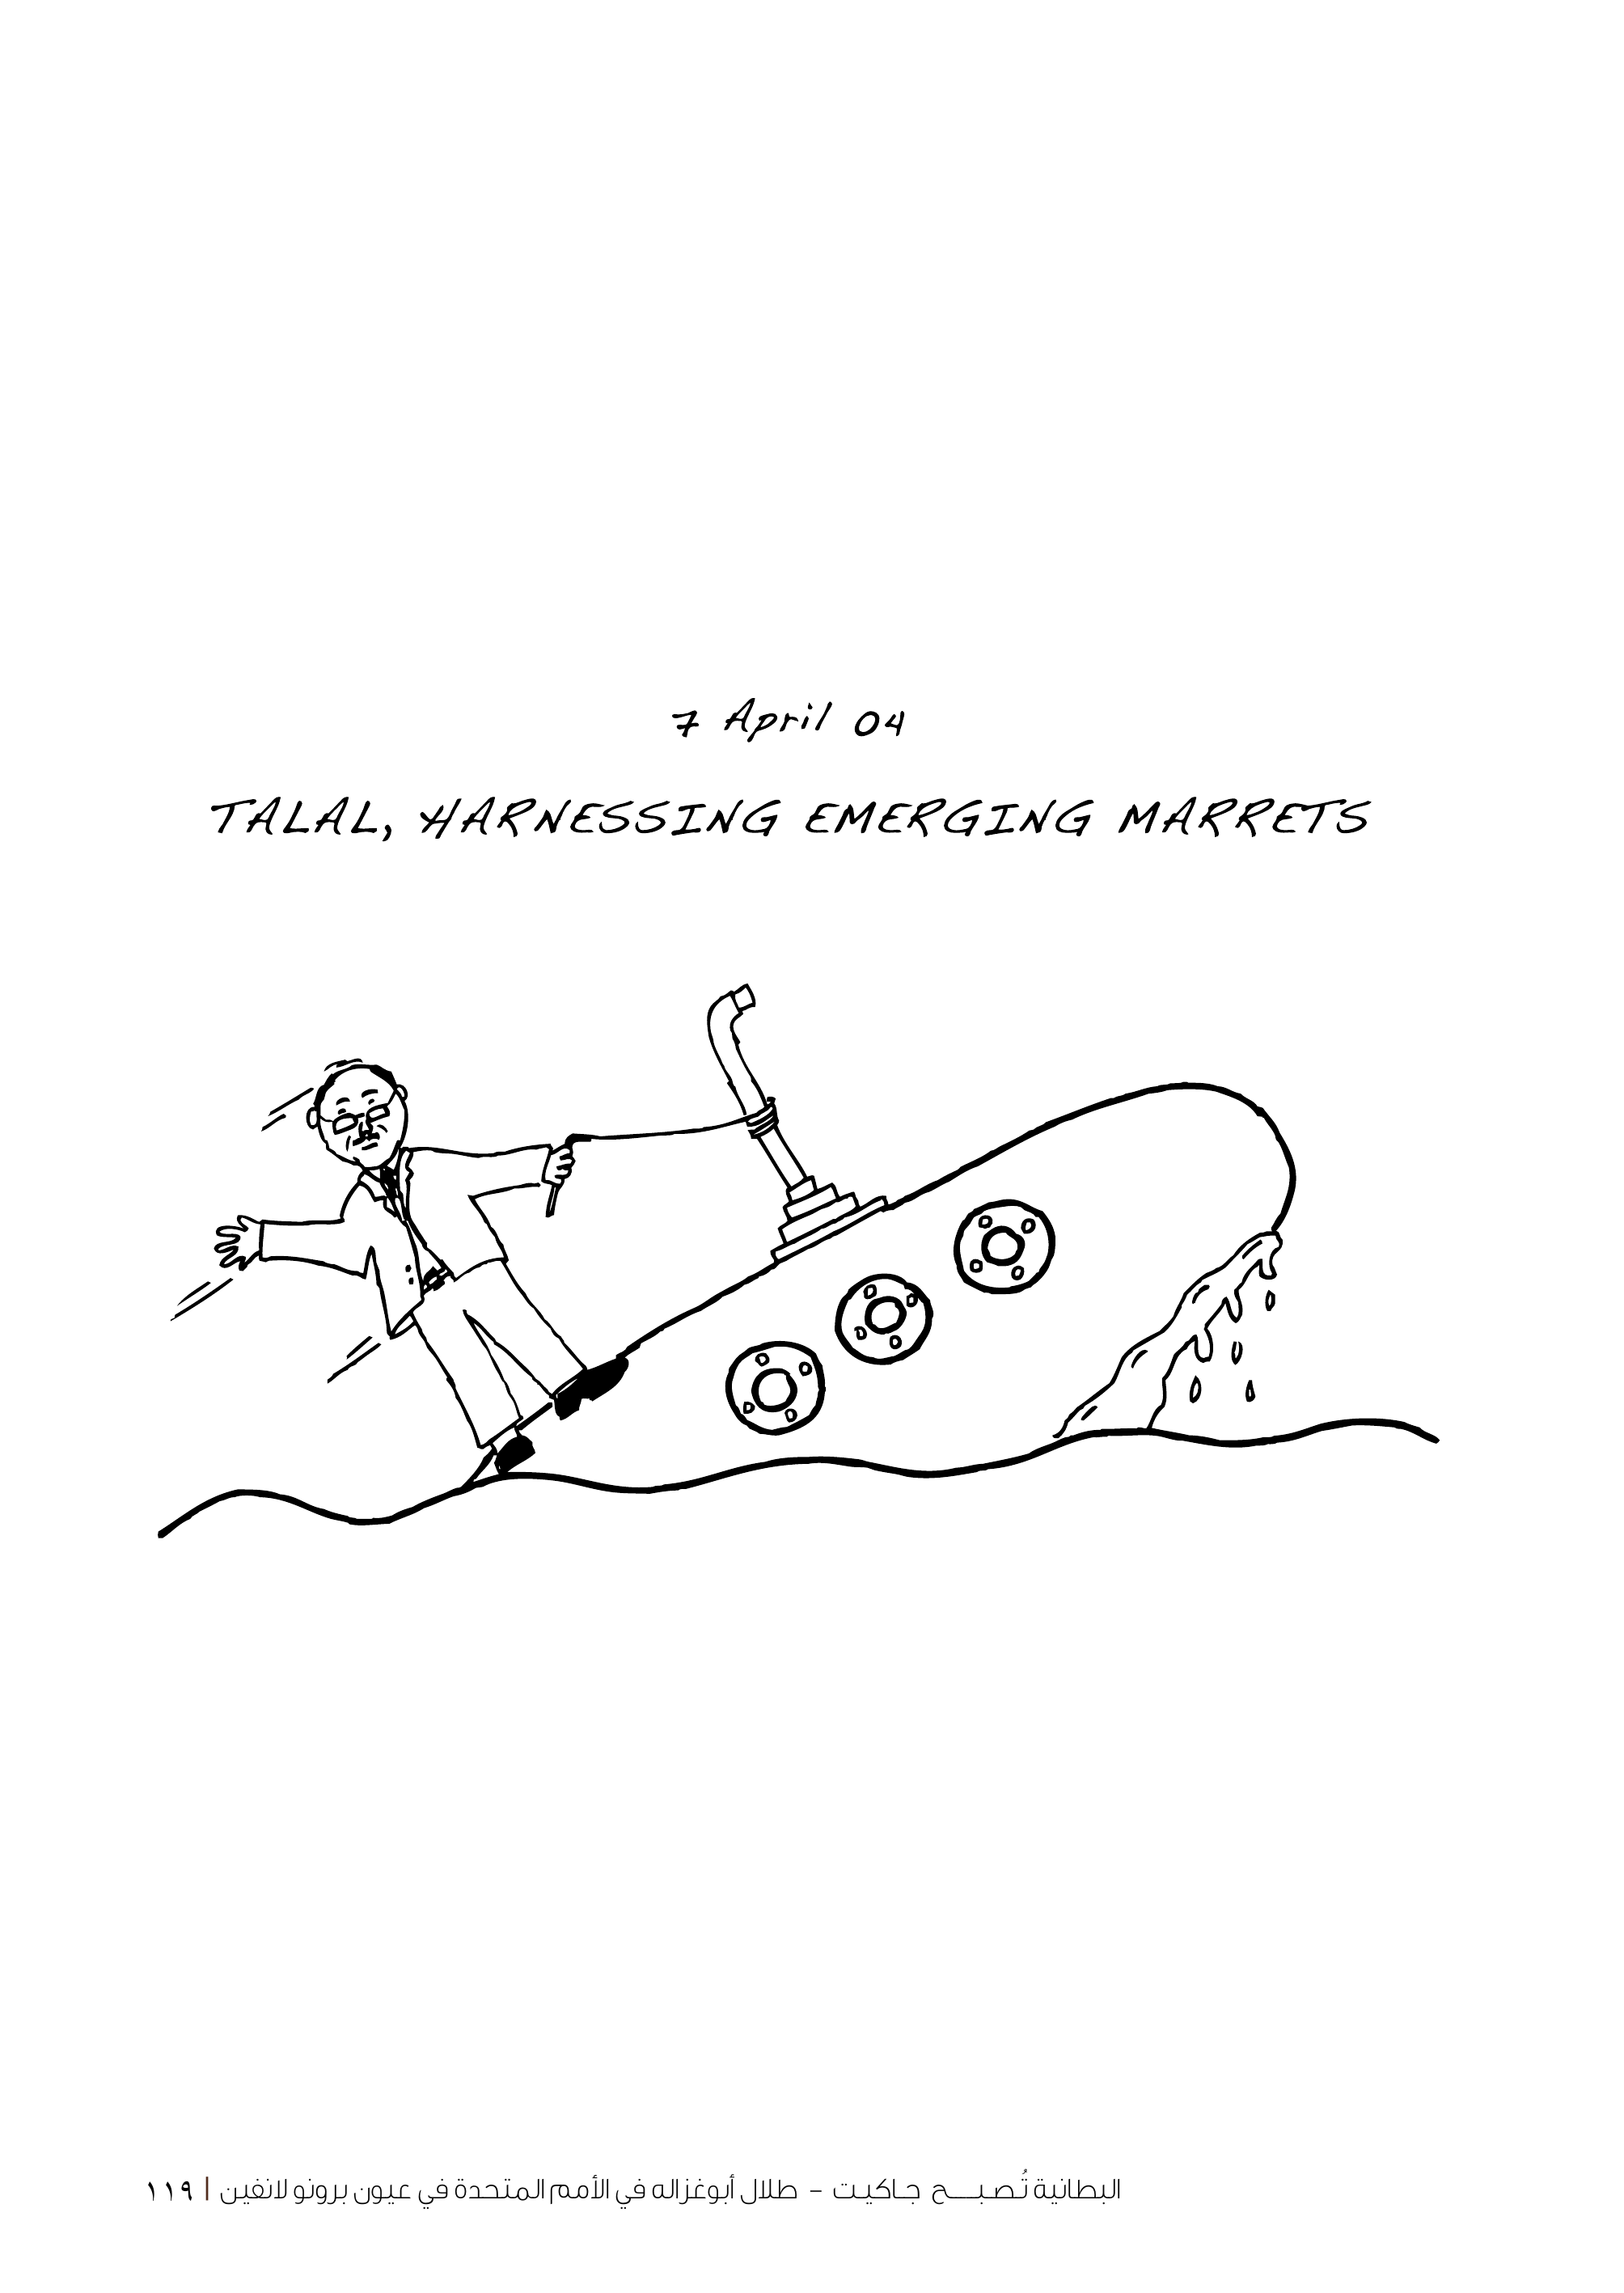 7 April 04
TALAL, HARNESSING EMERGING MARRETS
البطانية تُصبــــح جـاكيـت - طلال أبوغزاله في الأمم المتحدة في عيون برونو لانفين | ١١٩